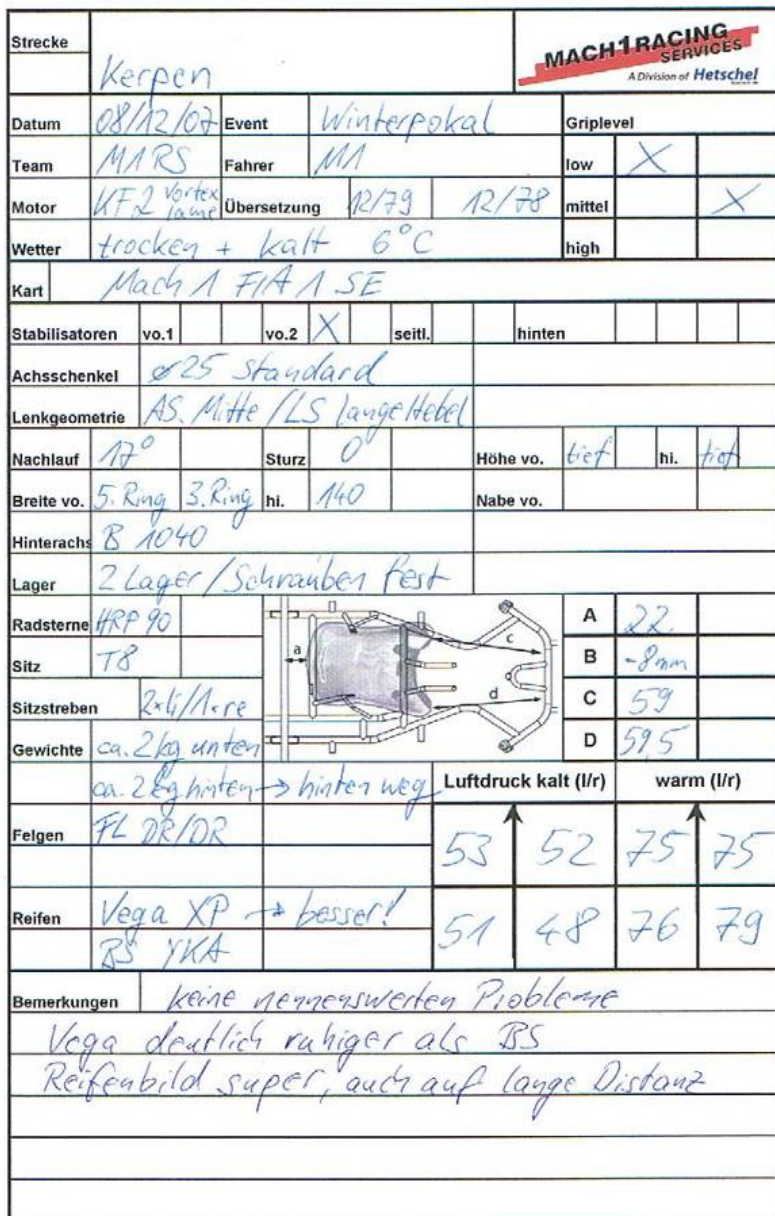 Strecke
Kerpen
MACH1RACING
SERVICES
A Division of Hetschel
Datum 08/12/07 Event Winterpokal Griplevel
Team M1RS Fahrer M1 low X
Motor KF2 Vortex Übersetzung 12/79 12/78 mittel X
Wetter trocken + kalt 6°C high
Kart Mach 1 FIA 1 SE
Stabilisatoren vo.1 vo.2 X seitl. hinten
Achsschenkel ø25 standard
Lenkgeometrie AS. Mitte / LS lange Hebel
Nachlauf 17° Sturz 0° Höhe vo. tief hi. tief
Breite vo. 5. Ring 3. Ring hi. 140 Nabe vo.
Hinterachs B 1040
Lager 2 Lager / Schrauben fest
Radsterne HRP 90 A 22
a c d
Sitz T8 B -8mm
Sitzstreben 2x li/1x re C 59
Gewichte ca. 2kg unten D 59,5
ca. 2kg hinten → hinten weg Luftdruck kalt (l/r) warm (l/r)
Felgen FL DR/DR 53 52 75 75
Reifen Vega XP → besser! 51 48 76 79
BS YKA
Bemerkungen keine nennenswerten Probleme
Vega deutlich ruhiger als BS
Reifenbild super, auch auf lange Distanz